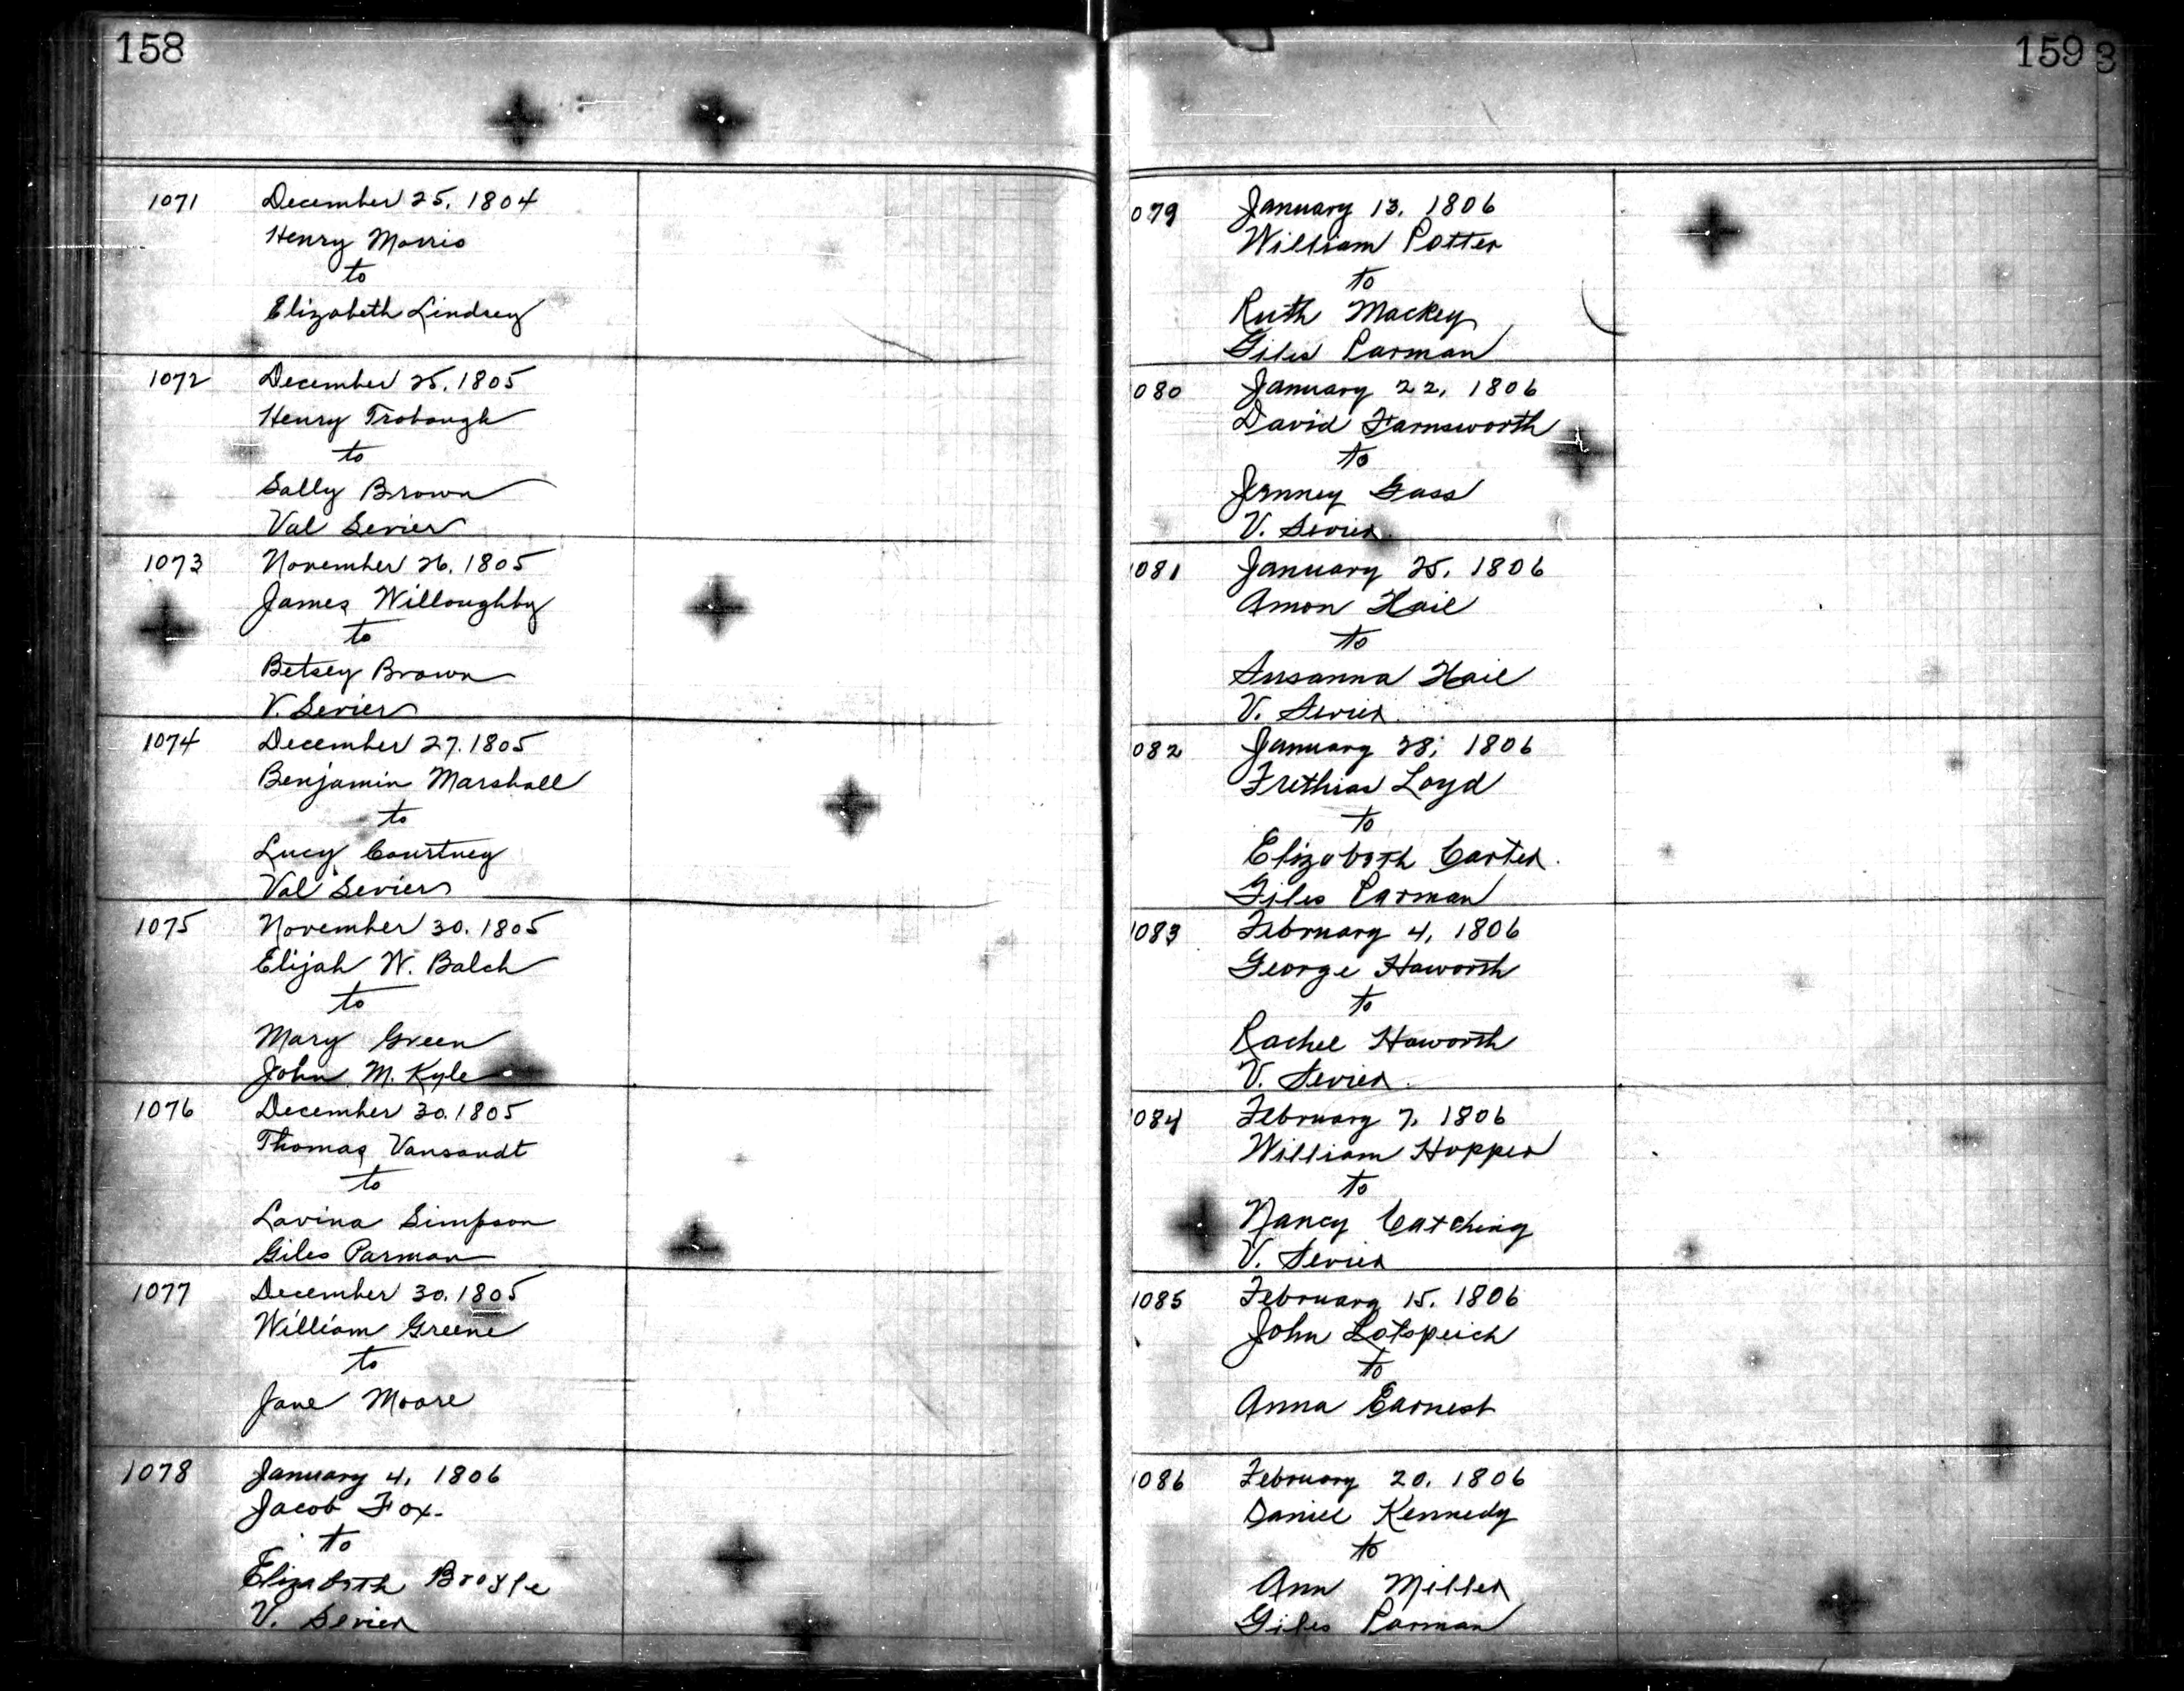 158
1071 December 25, 1804
Henry Morris
to
Elizabeth Lindsey
1072 December 25, 1805
Henry Trobough
to
Sally Brown
Val Sevier
1073 November 26, 1805
James Willoughby
to
Betsey Brown
V. Sevier
1074 December 27, 1805
Benjamin Marshall
to
Lucy Courtney
Val Sevier
1075 November 30, 1805
Elijah W. Balch
to
Mary Green
John M. Kyle
1076 December 30, 1805
Thomas Vansandt
to
Lavina Simpson
Giles Parman
1077 December 30, 1805
William Greene
to
Jane Moore
1078 January 4, 1806
Jacob Fox.
to
Elizabeth Broyle
V. Sevier
159 3
079 January 13, 1806
William Potter
to
Ruth Mackey
Giles Parman
080 January 22, 1806
David Farnsworth
to
Jenney Gass
V. Sevier.
1081 January 25, 1806
Amon Hail
to
Susanna Hail
V. Sevier.
082 January 28, 1806
Frethias Loyd
to
Elizabeth Carter.
Giles Parman
1083 February 4, 1806
George Haworth
to
Rachel Haworth
V. Sevier.
1084 February 7, 1806
William Hopper
to
Nancy Catching
V. Sevier
1085 February 15, 1806
John Lotspeich
to
Anna Earnest
1086 February 20, 1806
Daniel Kennedy
to
Ann Miller
Giles Parman